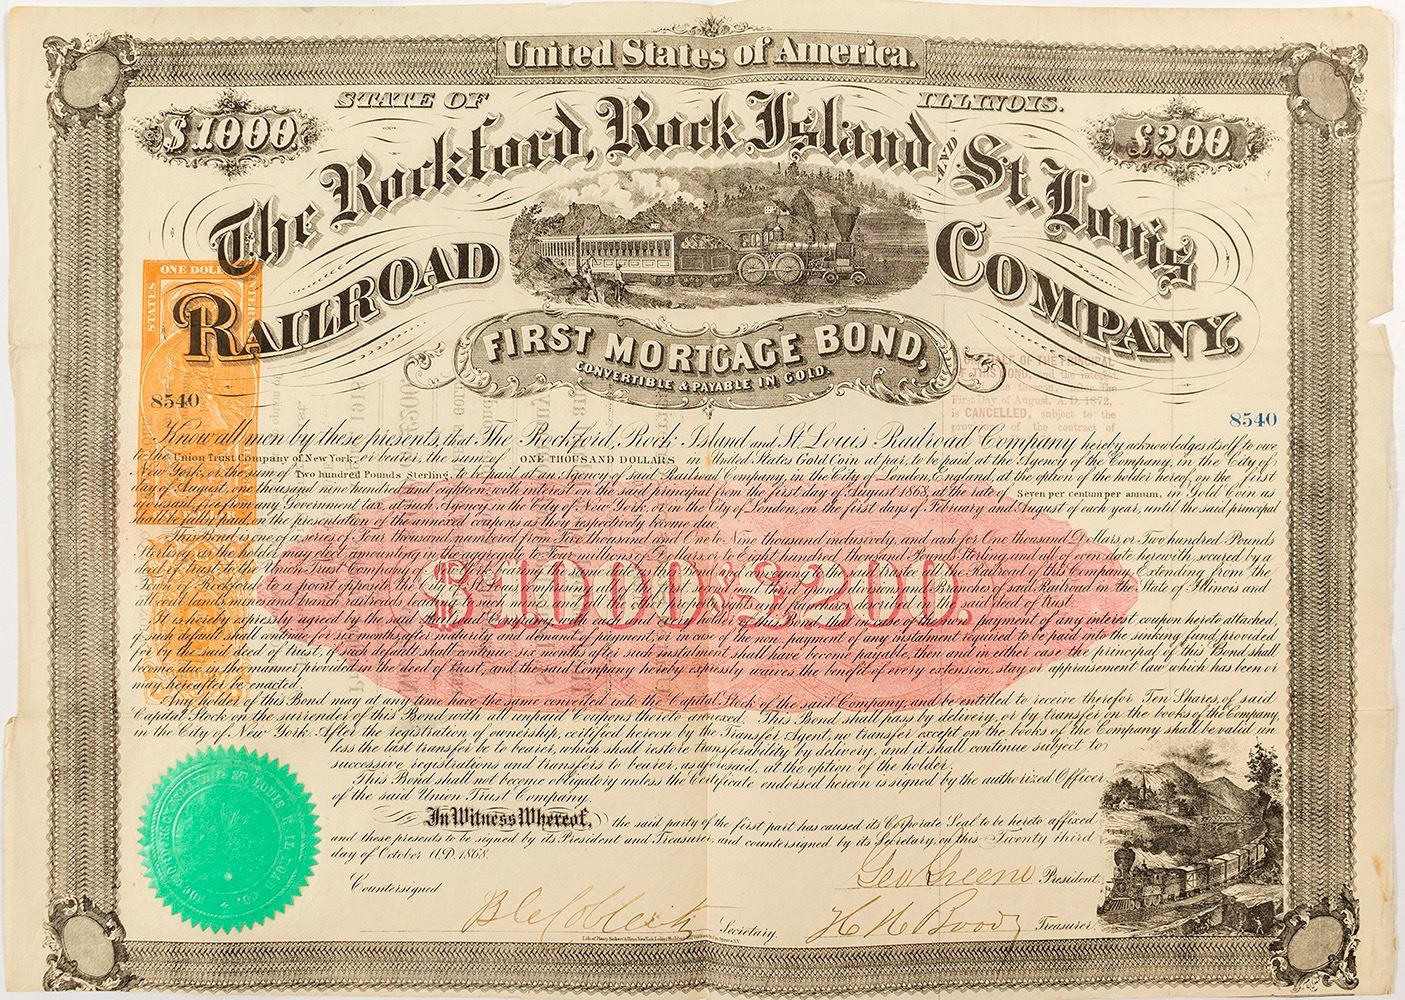 United States of America.
STATE OF ILLINOIS.
$1000 £200
The Rockford, Rock Island AND St. Louis
RAILROAD COMPANY,
FIRST MORTGAGE BOND,
CONVERTIBLE & PAYABLE IN GOLD.
ONE DOLL
STATES
INTER
HALF OF THE PRINCIPAL
OF THIS BOND, and the interest
thereon, after the
First Day of August, A. D. 1872,
is CANCELLED, subject to the
provisions of the contract of
8540 8540
Know all men by these presents, that The Rockford, Rock Island and St. Louis Railroad Company hereby acknowledges itself to owe
to the Union Trust Company of New York, or bearer, the sum of ONE THOUSAND DOLLARS in United States Gold Coin at par, to be paid at the Agency of the Company, in the City of
New York, or the sum of Two hundred Pounds Sterling, to be paid at an Agency of said Railroad Company, in the City of London, England, at the option of the holder hereof, on the first
day of August, one thousand nine hundred and eighteen, with interest on the said principal from the first day of August 1868, at the rate of Seven per centum per annum, in Gold Coin as
aforesaid, free from any Government tax, at such Agency in the City of New York, or in the City of London, on the first days of February and August of each year, until the said principal
shall be fully paid, on the presentation of the annexed coupons as they respectively become due.
This Bond is one of a series of Four thousand numbered from Five Thousand and One to Nine thousand inclusively, and each for One thousand Dollars or Two hundred Pounds
Sterling, as the holder may elect, amounting in the aggregate to Four millions of Dollars, or to Eight hundred thousand Pounds Sterling and all of even date herewith, secured by a
deed of trust to the Union Trust Company of New York, bearing the same date with this Bond, and conveying to the said trustee all the Railroad of this Company, Extending from the
City of Rockford to a point opposite the City of St. Louis, comprising the first, second and third grand divisions and Branches of said Railroad in the State of Illinois and
all coal lands, mines and branch railroads leading to such mines, with all the property, rights and franchises described in said deed of Trust.
It is hereby expressly agreed by the said Railroad Company with each and every holder of this Bond, that in case of the non payment of any interest coupon hereto attached,
if such default shall continue for six months after maturity and demand of payment, or in case of the non payment of any instalment required to be paid into the sinking fund provided
for by the said deed of trust, if such default shall continue six months after such instalment shall have become payable, then and in either case the principal of this Bond shall
become due in the manner provided in the deed of trust, and the said Company hereby expressly waives the benefit of every extension, stay or appraisement law which has been or
may hereafter be enacted.
$1000 & £200.
Any holder of this Bond may at any time have the same converted into the Capital Stock of the said Company, and be entitled to receive therefor Ten Shares of said
Capital Stock on the surrender of this Bond with all unpaid Coupons thereto annexed. This Bond shall pass by delivery, or by transfer on the books of the Company,
in the City of New York. After the registration of ownership, certified hereon by the Transfer Agent, no transfer except on the books of the Company shall be valid un
less the last transfer be to bearer, which shall restore transferability by delivery, and it shall continue subject to
successive registrations and transfers to bearer, as aforesaid, at the option of the holder.
This Bond shall not become obligatory unless the Certificate endorsed hereon is signed by the authorized Officer
of the said Union Trust Company.
In Witness Whereof, the said party of the first part has caused its Corporate Seal to be hereto affixed
and these presents to be signed by its President and Treasurer, and countersigned by its Secretary, on this Twenty third
day of October A.D. 1868.
Geo Greene President.
Countersigned
Secretary. H. H. Boody Treasurer.